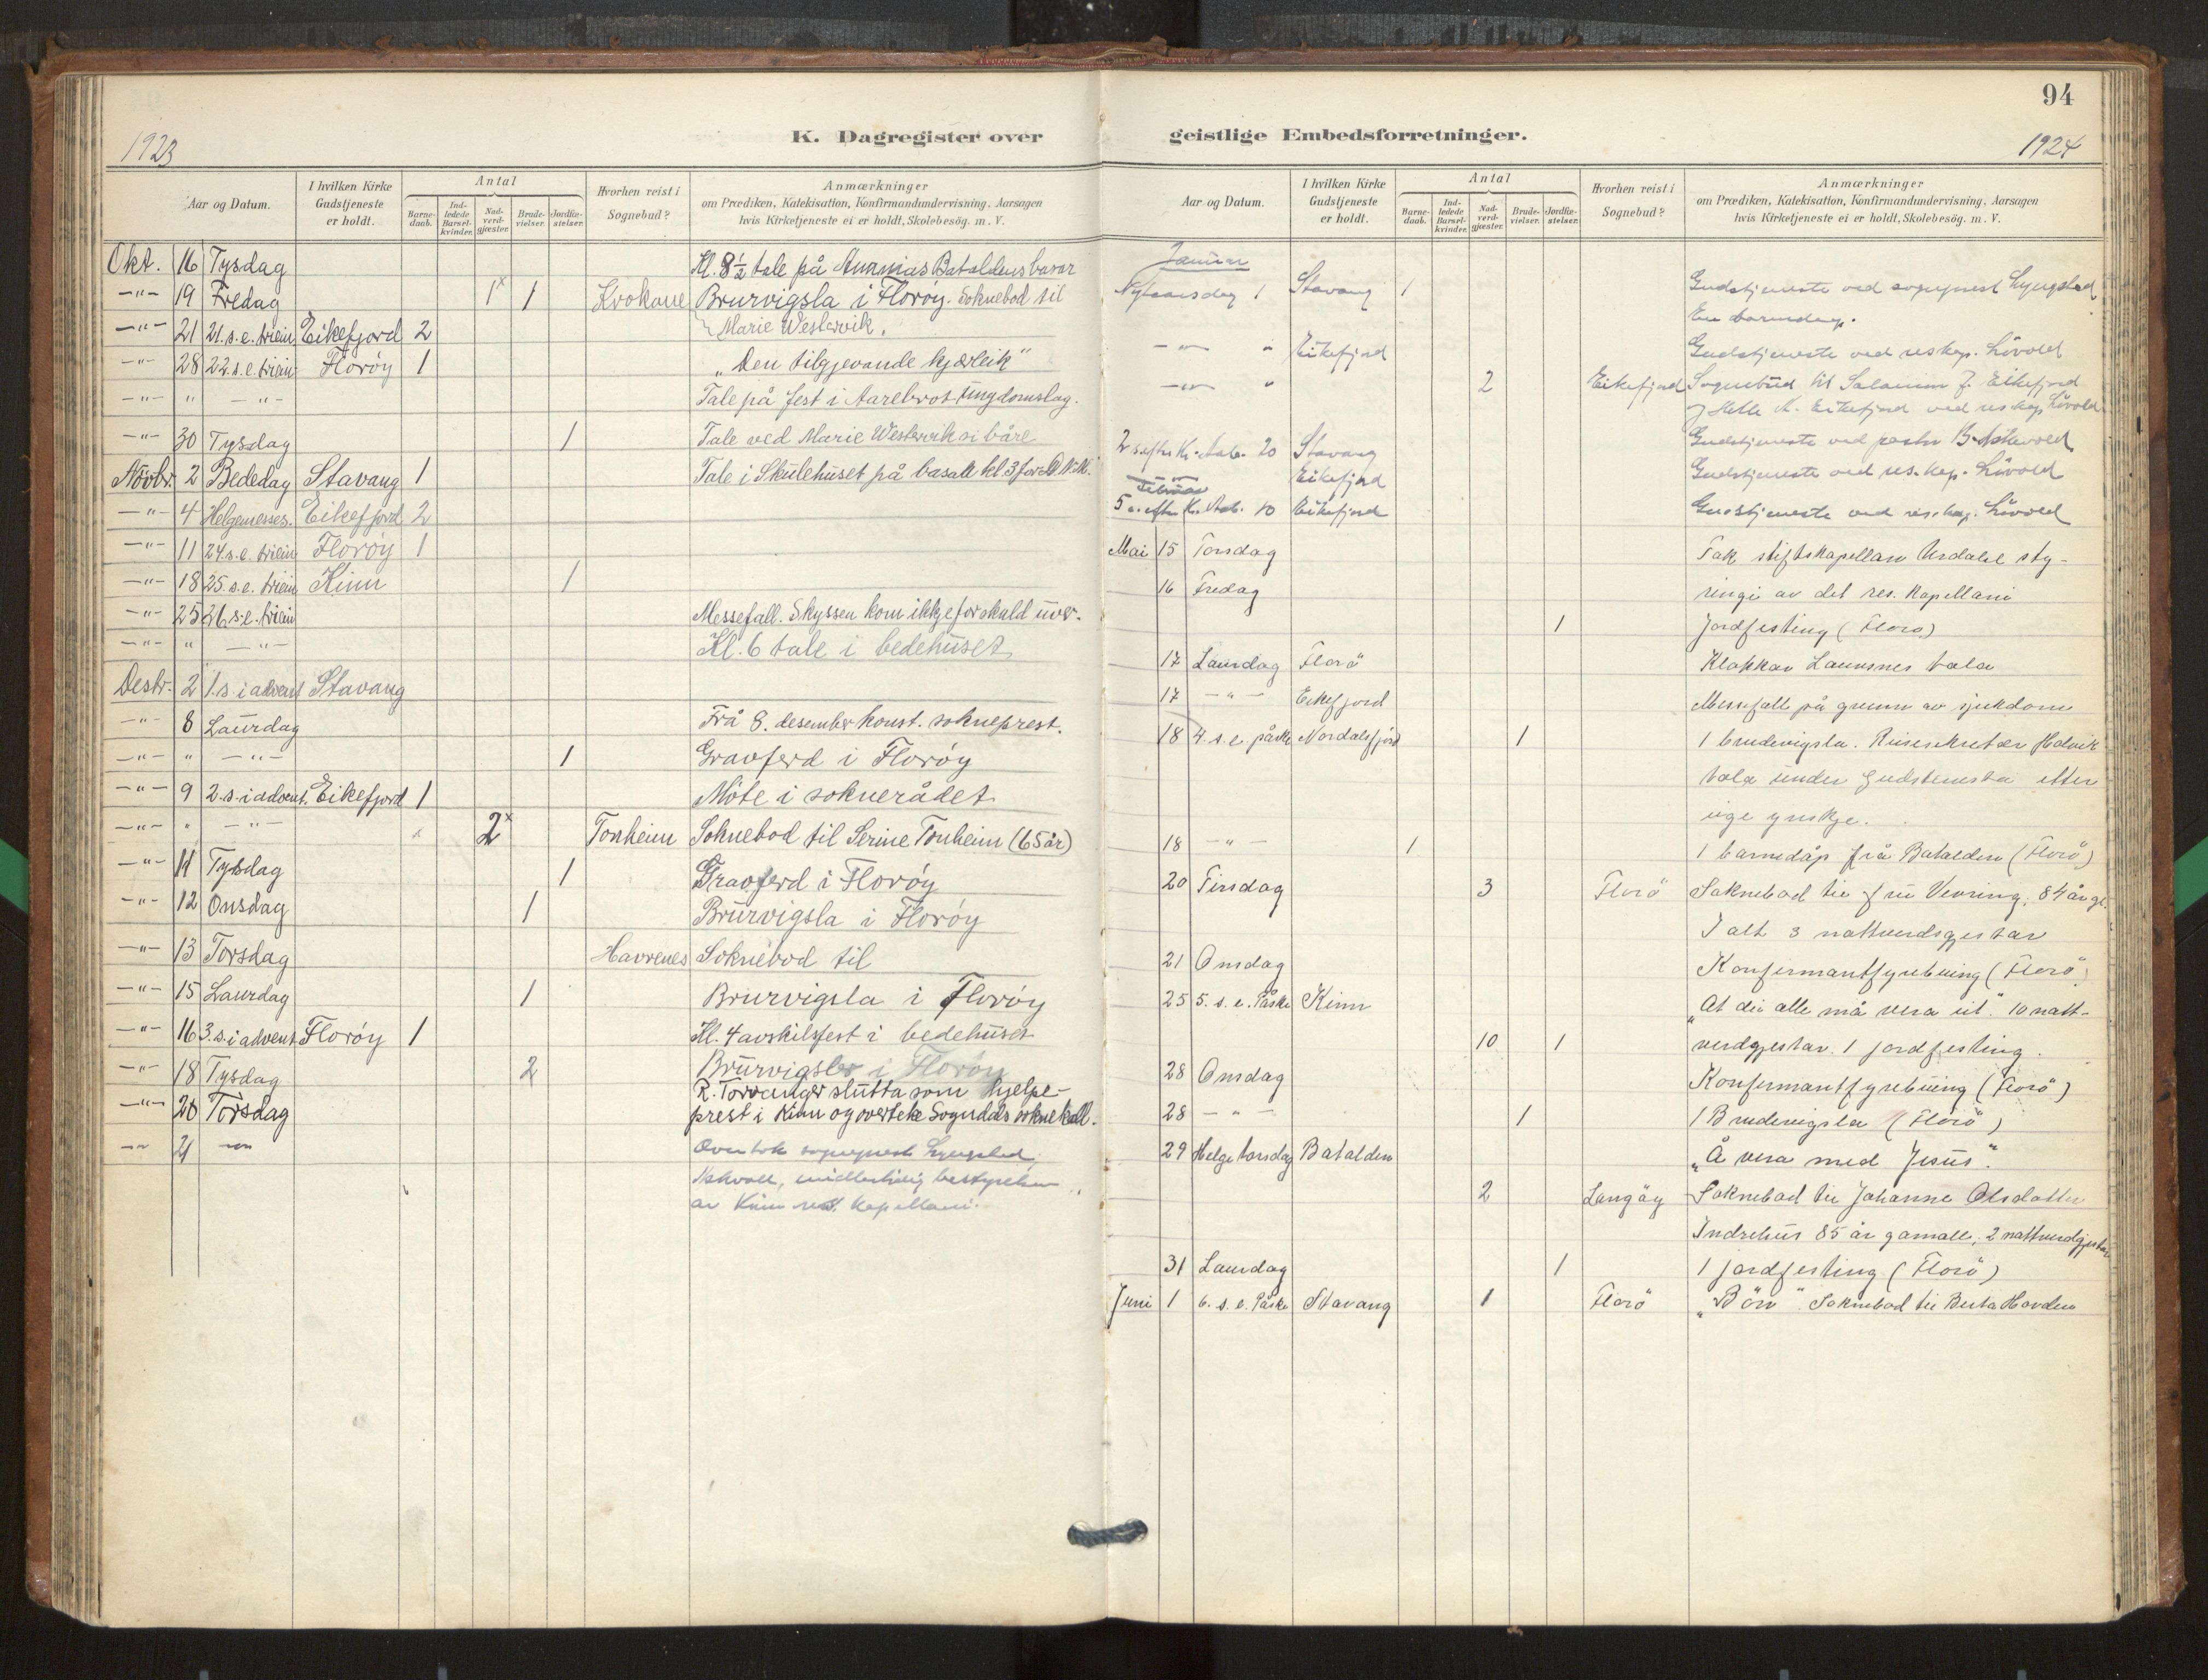 94
1923
K. Dagregister over
Aar og Datum.
I hvilken Kirke Gudstjeneste er holdt.
Antal
Barne-daab.
Ind-ledede Barsel-kvinder.
Nad-verd-gjæster.
Brude-vielser.
Jordfæ-stelser.
Hvorhen reist i Sognebud?
Anmærkninger
om Prædiken, Katekisation, Konfirmandundervisning, Aarsagen
hvis Kirketjeneste ei er holdt, Skolebesög. m. V.
Okt. 16 Tysdag Kl. 8½ tale på Bataldens basar
-"- 19 Fredag 1x 1 Krokane Brurvigsla i Floröy. Soknebod til
Marie Westervik.
-"- 21 21.s.e. triein Eikefjord 2
-"- 28 22.s.e. triein Floröy 1 „Den tilgjevande kjærleik"
-"- " -"- Tale på fest i Aarebrot ungdomslag.
-"- 30 Tysdag 1 Tale ved Marie Westervik si båre
Növbr. 2 Bededag Stavang 1 Tale i Skulehuset på basar kl 3 for
-"- 4 Helgemesses. Eikefjord 2
-"- 11 24.s.e. triein Floröy 1
-"- 18 25.s.e. triein Kinn 1
-"- 25 26.s.e. triein Messefall. Skyssen kom ikkje for skuld uver.
-"- " -"- Kl. 6 tale i bedehuset
Desbr. 2 1.s. i advent Stavang
-"- 8 Laurdag Frå 8. desember konst. sokneprest.
-"- " -"- 1 Gravferd i Floröy
-"- 9 2.s. i advent. Eikefjord 1 Möte i soknerådet
-"- " -"- 2x Tonheim Soknebod til Serine Tonheim (65 år)
-"- 11 Tysdag 1 Gravferd i Floröy
-"- 12 Onsdag 1 Brurvigsla i Floröy
-"- 13 Torsdag Havrenes Soknebod til
-"- 15 Laurdag 1 Brurvigsla i Floröy
-"- 16 3.s. i advent Floröy 1 Kl. 4 avskilsfest i bedehuset
-"- 18 Tysdag 2 Brurvigsler i Floröy
R. Torvanger slutta som hjelpe-
-"- 20 Torsdag prest i Kinn og overteke Sogndals soknekall.
-"- 21 -"- Overtok sogneprest Lyngstad,
Askvoll, midlertidig bestyrelsen
av Kinn res. kapellani.
geistlige Embedsforretninger.
1924
Aar og Datum.
I hvilken Kirke Gudstjeneste er holdt.
Antal
Barne-daab.
Ind-ledede Barsel-kvinder.
Nad-verd-gjæster.
Brude-vielser.
Jordfæ-stelser.
Hvorhen reist i Sognebud?
Anmærkninger
om Prædiken, Katekisation, Konfirmandundervisning, Aarsagen
hvis Kirketjeneste ei er holdt, Skolebesög. m. V.
Januar
Nytaarsdag 1 Stavang 1 Gudstjeneste ved sogneprest Lyngstad
En barnedåp.
-"- " Eikefjord Gudstjeneste ved res kap. Lövold
-"- " 2 Eikefjord Sognebud til J. Eikefjord
A. Eikefjord ved res kap Lövold
2 s. efter Kr. Aab. 20 Stavang Gudstjeneste ved pastor
-"- Eikefjord Gudstjeneste ved res. kap. Lövold
Februar
5 s. efter Kr. Aab. 10 Eikefjord Gudstjeneste ved res. kap. Lövold
Mai 15 Torsdag Tok stiftskapellan Urdahl sty-
16 Fredag ringi av det res. kapellani
1 Jordfesting (Florö)
17 Laurdag Florö Klokkar Laumsnes tala
17 -"- Eikefjord Messefall på grunn av sjukdom
18 4.s.e. påske Nordalsfjord 1 1 brudevigsla. Reisesekretær Holvik
tala under gudstenesta etter
eige ynskje.
18 -"- 1 1 barnedåp frå Batalden (Florö)
20 Tirsdag 3 Florö Soknebod til fru Vevring, 84 år gl.
I alt 3 nattverdsgjestar
21 Onsdag Konfirmantfyrebuing (Florö)
25 5. s. e. Påske Kinn „At dei alle må vera eit." 10 natt-
10 1 verdgjestar. 1 jordfesting.
28 Onsdag Konfirmantfyrebuing (Florö)
28 -"- 1 1 Brudevigsla (Florö)
29 Helgetorsdag Batalden „Å vera med Jesus."
2 Langöy Soknebod til Johanne Olsdotter
Indrehus 85 år gamall, 2 nattverdgjestar
31 Laurdag 1 1 jordfesting (Florö)
Juni 1 6. s. e. Påske Stavang 1 Florö „Bön". Soknebod til Berta Havden